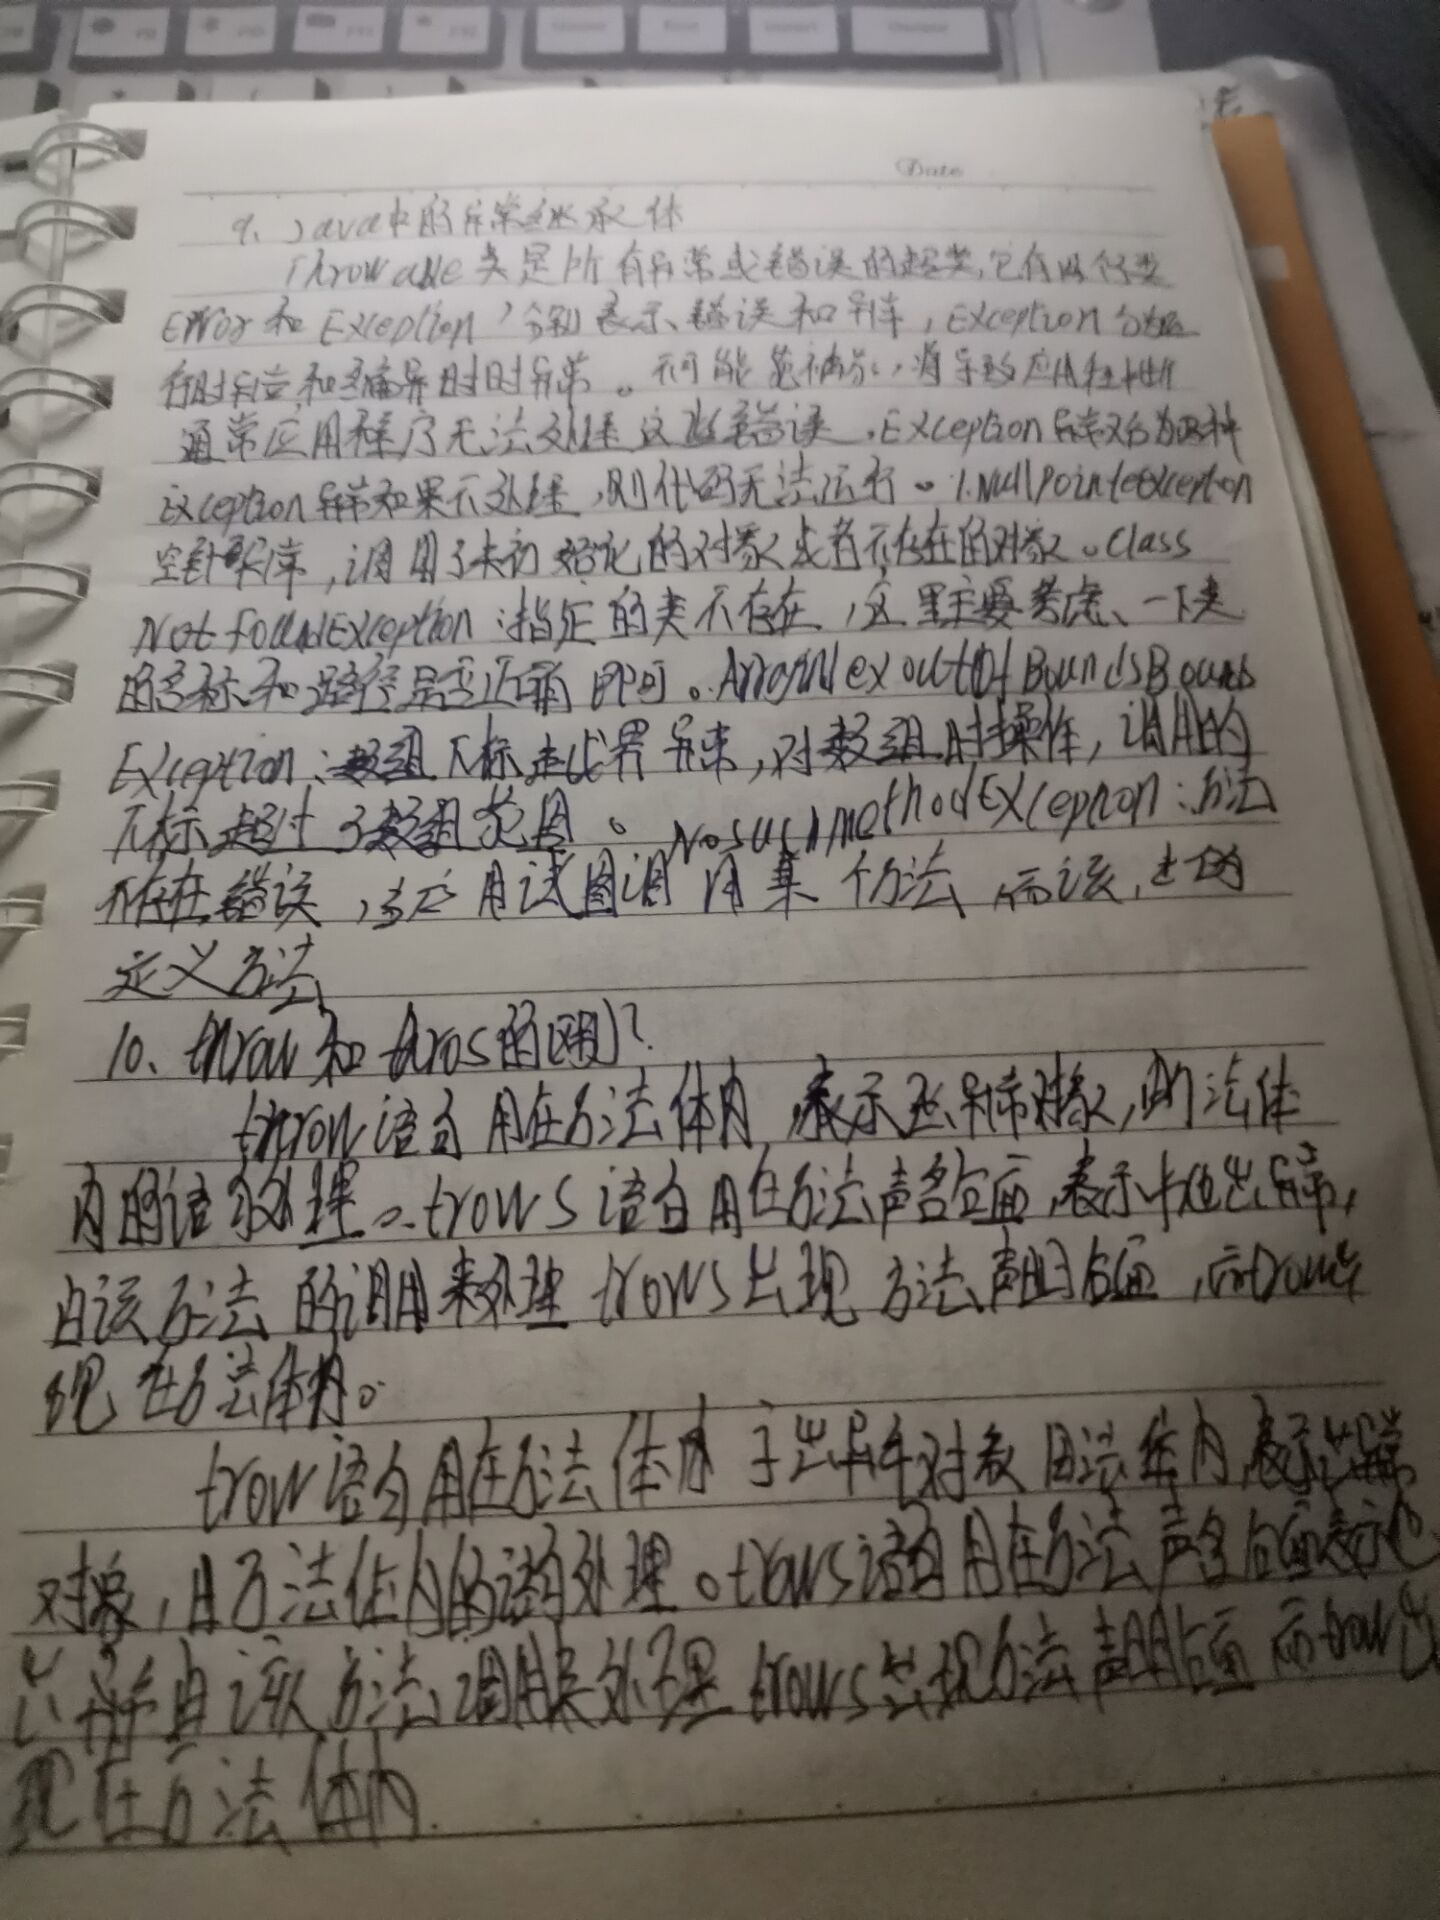 Date
9、Java中的异常继承体
Throwable类是所有异常或错误的超类,它有两个
Error和Exception,分别表示错误和异常,Exception分为
行时异常和编异时时异常。不可能,将导致应用程
通常应用程序无法处理这些错误,Exception异常又分为两种
Exception异常如果不处理,则代码无法运行。1.NullPointeException
空针异常,调用了未初始化的对象或者不存在的对象。Class
NotFoundException:指定的类不存在,这里主要考虑、一下类
的名称和路径是否正确即可。ArrayIndexOutOfBoundsBounds
Exception:数组下标越界异常,对数组时操作,调用的
下标超过了数组范围。NosuchmethodException:方法
不存在错误,当应用试图调用某个方法,而该
定义方法
10、throw和thros的区别?
throw语句用在方法体内,表示出异常对象,由方法体
内的语句处理。trows语句用在方法声名后面,表示抛出异常,
由该方法的调用来处理trows出现方法声明后面,而trow出
现在方法体内。
trow语句用在方法体内 出异常对象 由法体内,表示出异常
对象,由方法体内的语句处理。trows语句用在方法声名后面表示
出异常由该方法调用来处理trows出现方法声明后面而trow出
现在方法体内.